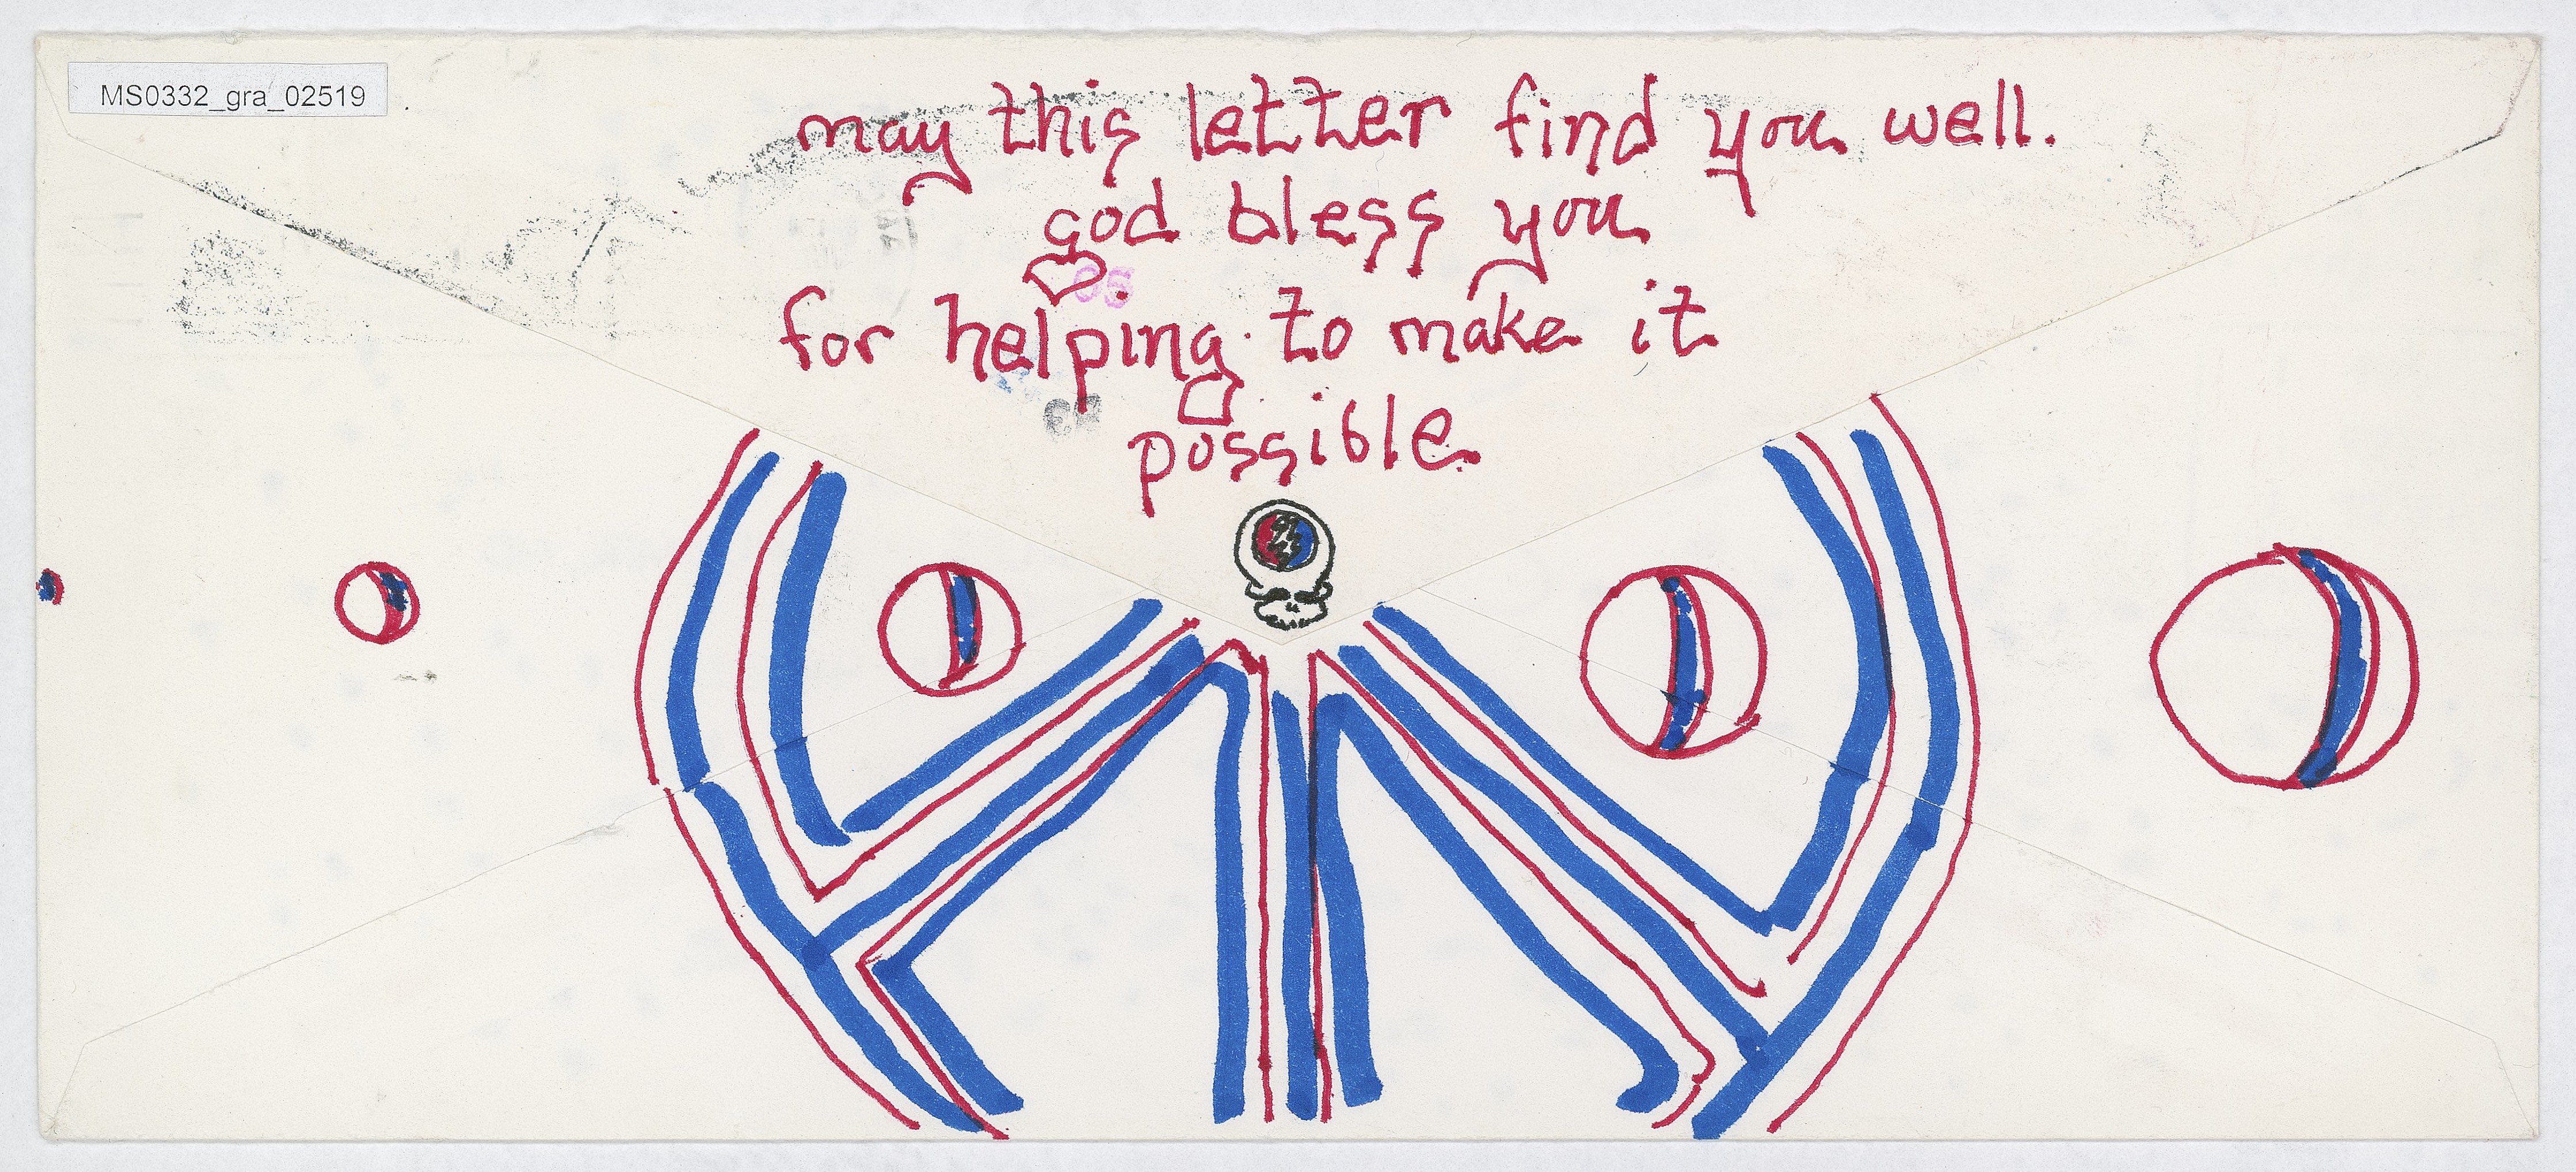 MS0332_gra_02519
may this letter find you well.
god bless you
for helping to make it
possible.